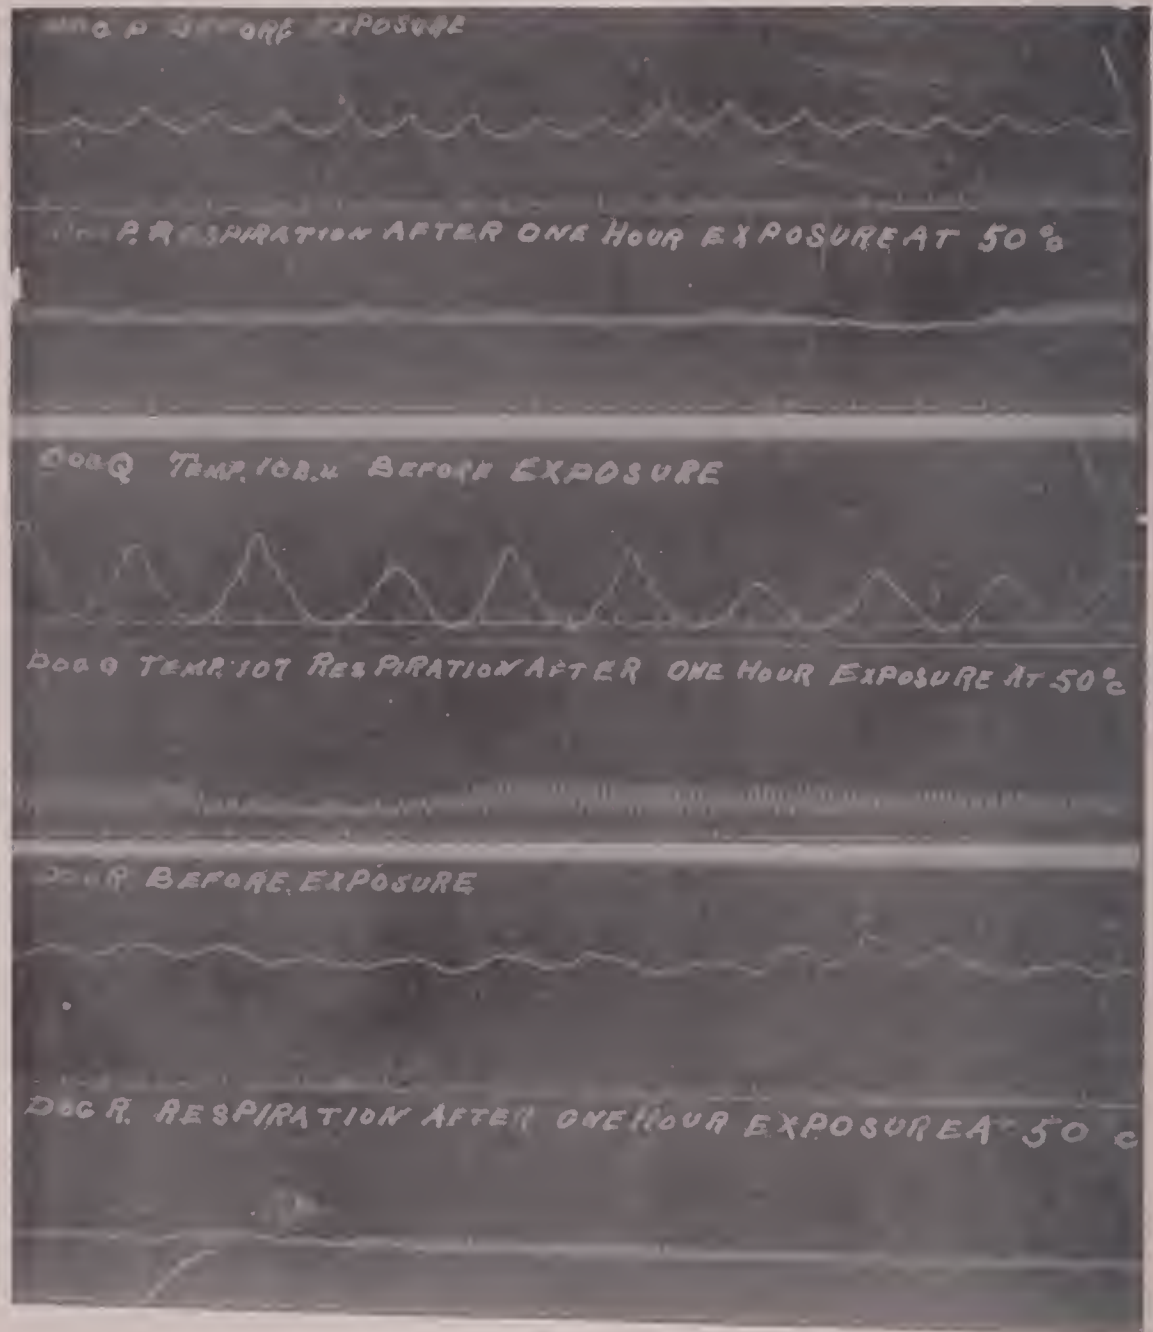 P BEFORE EXPOSURE
P. RESPIRATION AFTER ONE HOUR EXPOSURE AT 50°C
DOG Q TEMP. BEFORE EXPOSURE
DOG Q TEMP. 107 RESPIRATION AFTER ONE HOUR EXPOSURE AT 50°C
DOG R BEFORE EXPOSURE
DOG R. RESPIRATION AFTER ONE HOUR EXPOSURE A 50 C